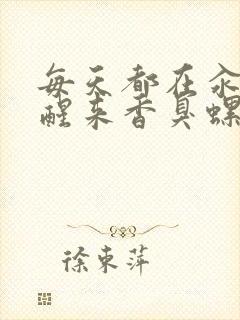 每天都在汆
醒来香臭螺
徐東萍